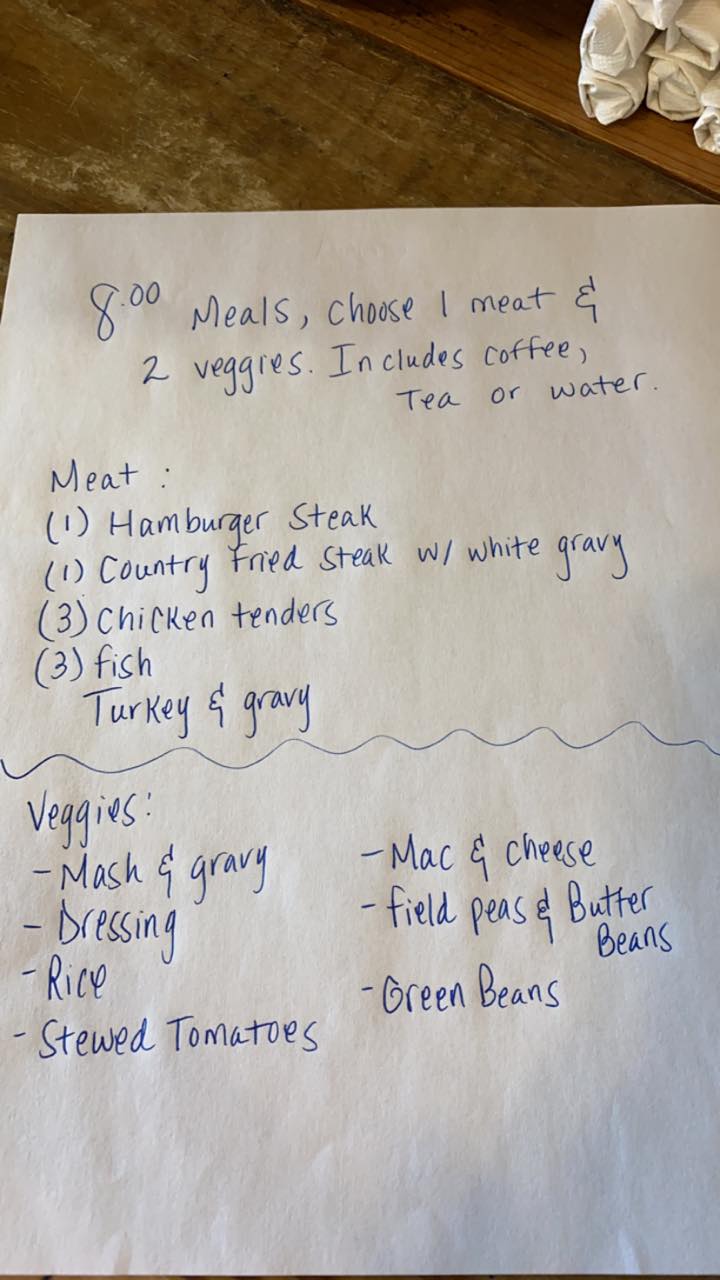 8.00 Meals, choose 1 meat &
2 veggies. Includes coffee,
Tea or water.
Meat :
(1) Hamburger Steak
(1) Country Fried Steak w/ white gravy
(3) Chicken tenders
(3) fish
Turkey & gravy
Veggies:
- Mash & gravy
- Dressing
- Rice
- Stewed Tomatoes
- Mac & cheese
- field peas & Butter
Beans
- Green Beans